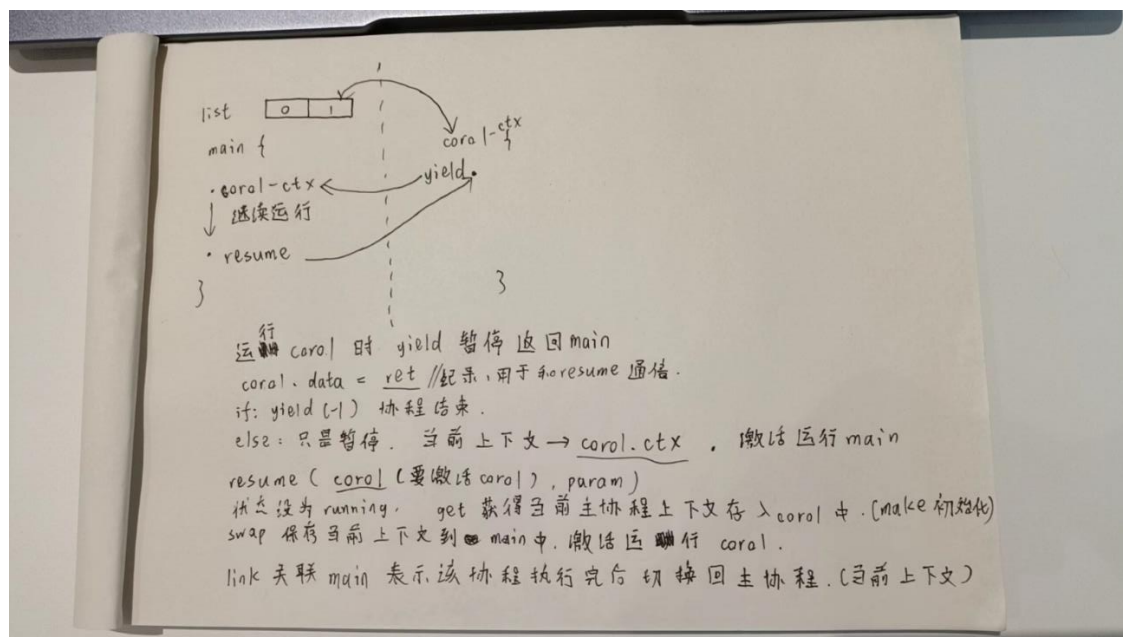 list 0 1
coro1-ctx {
main {
yield
coro1-ctx
继续运行
resume
}
}
运行 coro1 时 yield 暂停返回main
coro1.data = ret //纪录,用于和resume 通信.
if: yield (-1) 协程结束.
else: 只是暂停. 当前上下文→coro1.ctx , 激活运行main
resume ( coro1 (要激活coro1), param )
状态设为running. get 获得当前主协程上下文存入coro1中.(make初始化)
swap 保存当前上下文到main中.激活运行 coro1.
link 关联 main 表示该协程执行完后切换回主协程.(当前上下文)